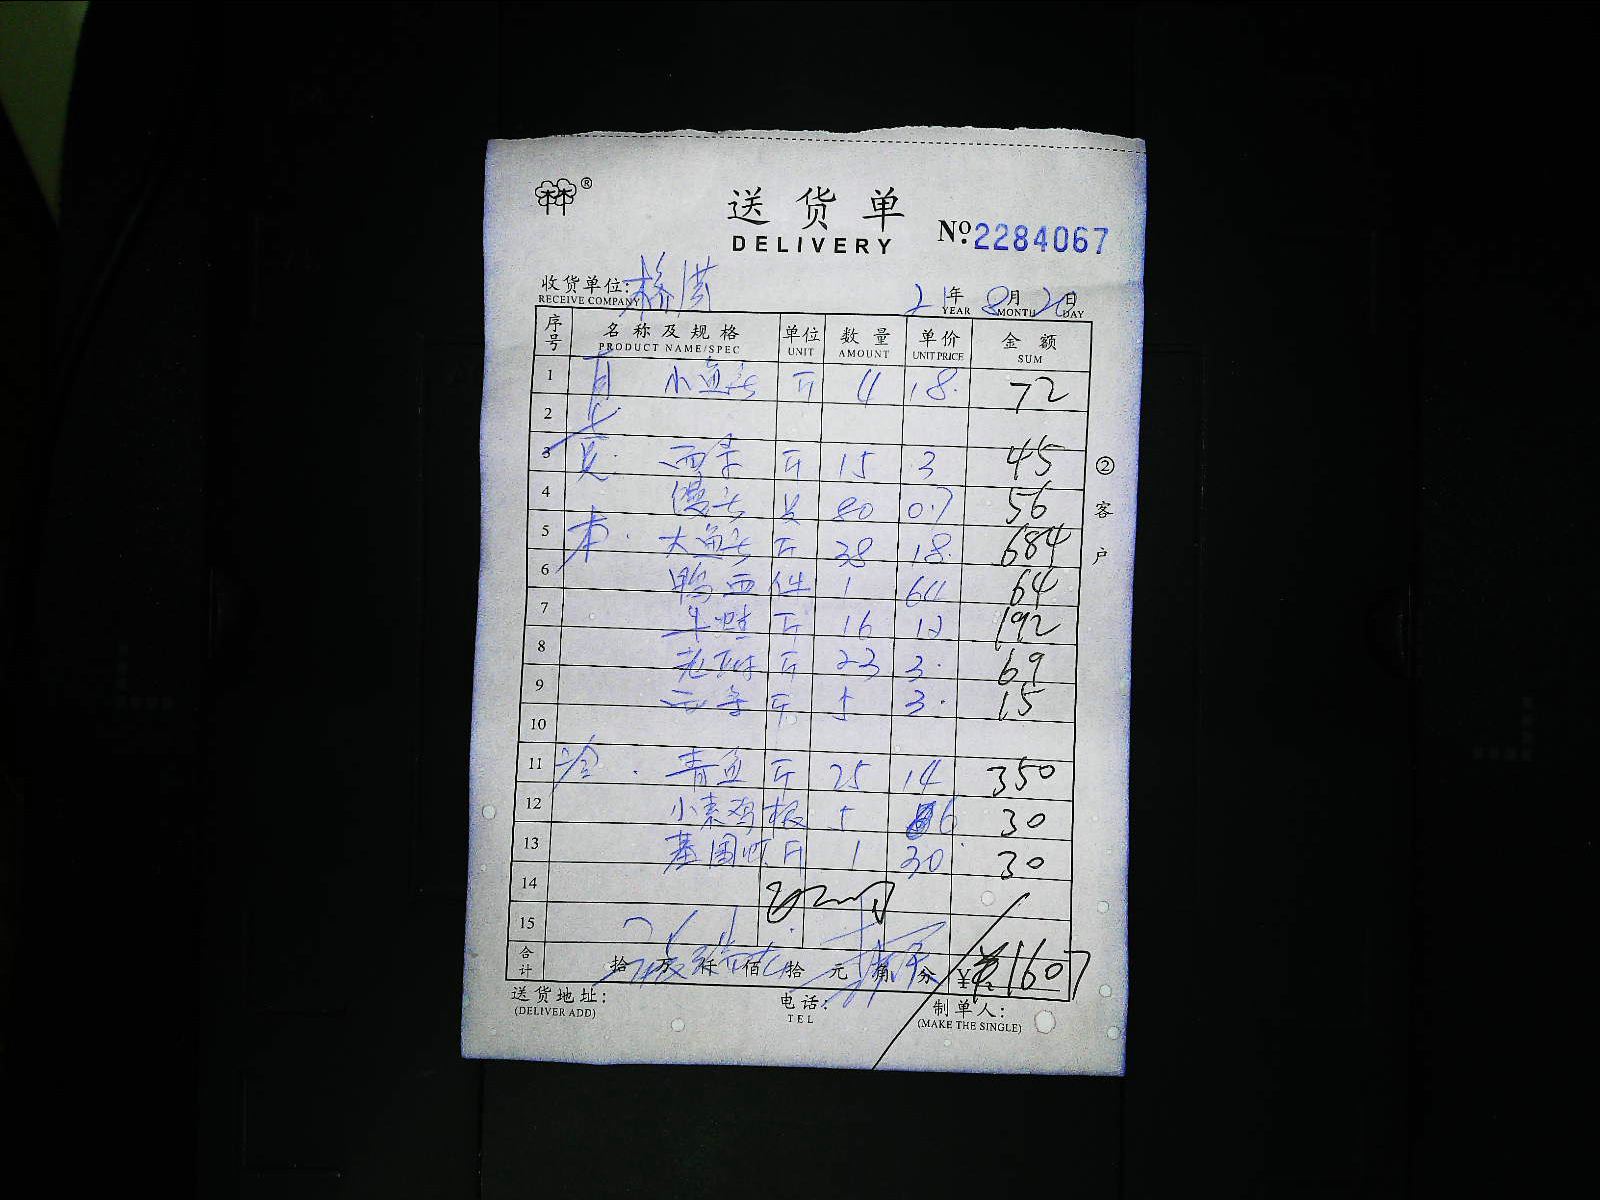 林林 ®
送货单
DELIVERY
No. 2284067
收货单位:
RECEIVE COMPANY
21年 8月 20日
YEAR MONTH DAY
序号 名称及规格 单位 数量 单价 金额
PRODUCT NAME/SPEC UNIT AMOUNT UNIT PRICE SUM
1 小鱼头 斤 4 18. 72
2
3 西芹 斤 15 3 45
4 馒头 只 80 0.7 56
5 本. 大鱼头 斤 38 18. 684
6 鸭西 件 1 64 64
7 牛蛙 斤 16 12 192
8 斤 23 3. 69
9 斤 5 3. 15
10
11 冷. 青鱼 斤 25 14 350
12 小素鸡 根 5 6 30
13 基围虾 斤 1 30. 30
14
15
合计 拾 万 仟 佰 拾 元 角 分 ¥ 1607
送货地址:
(DELIVER ADD)
电话:
TEL
制单人:
(MAKE THE SINGLE)
②客户